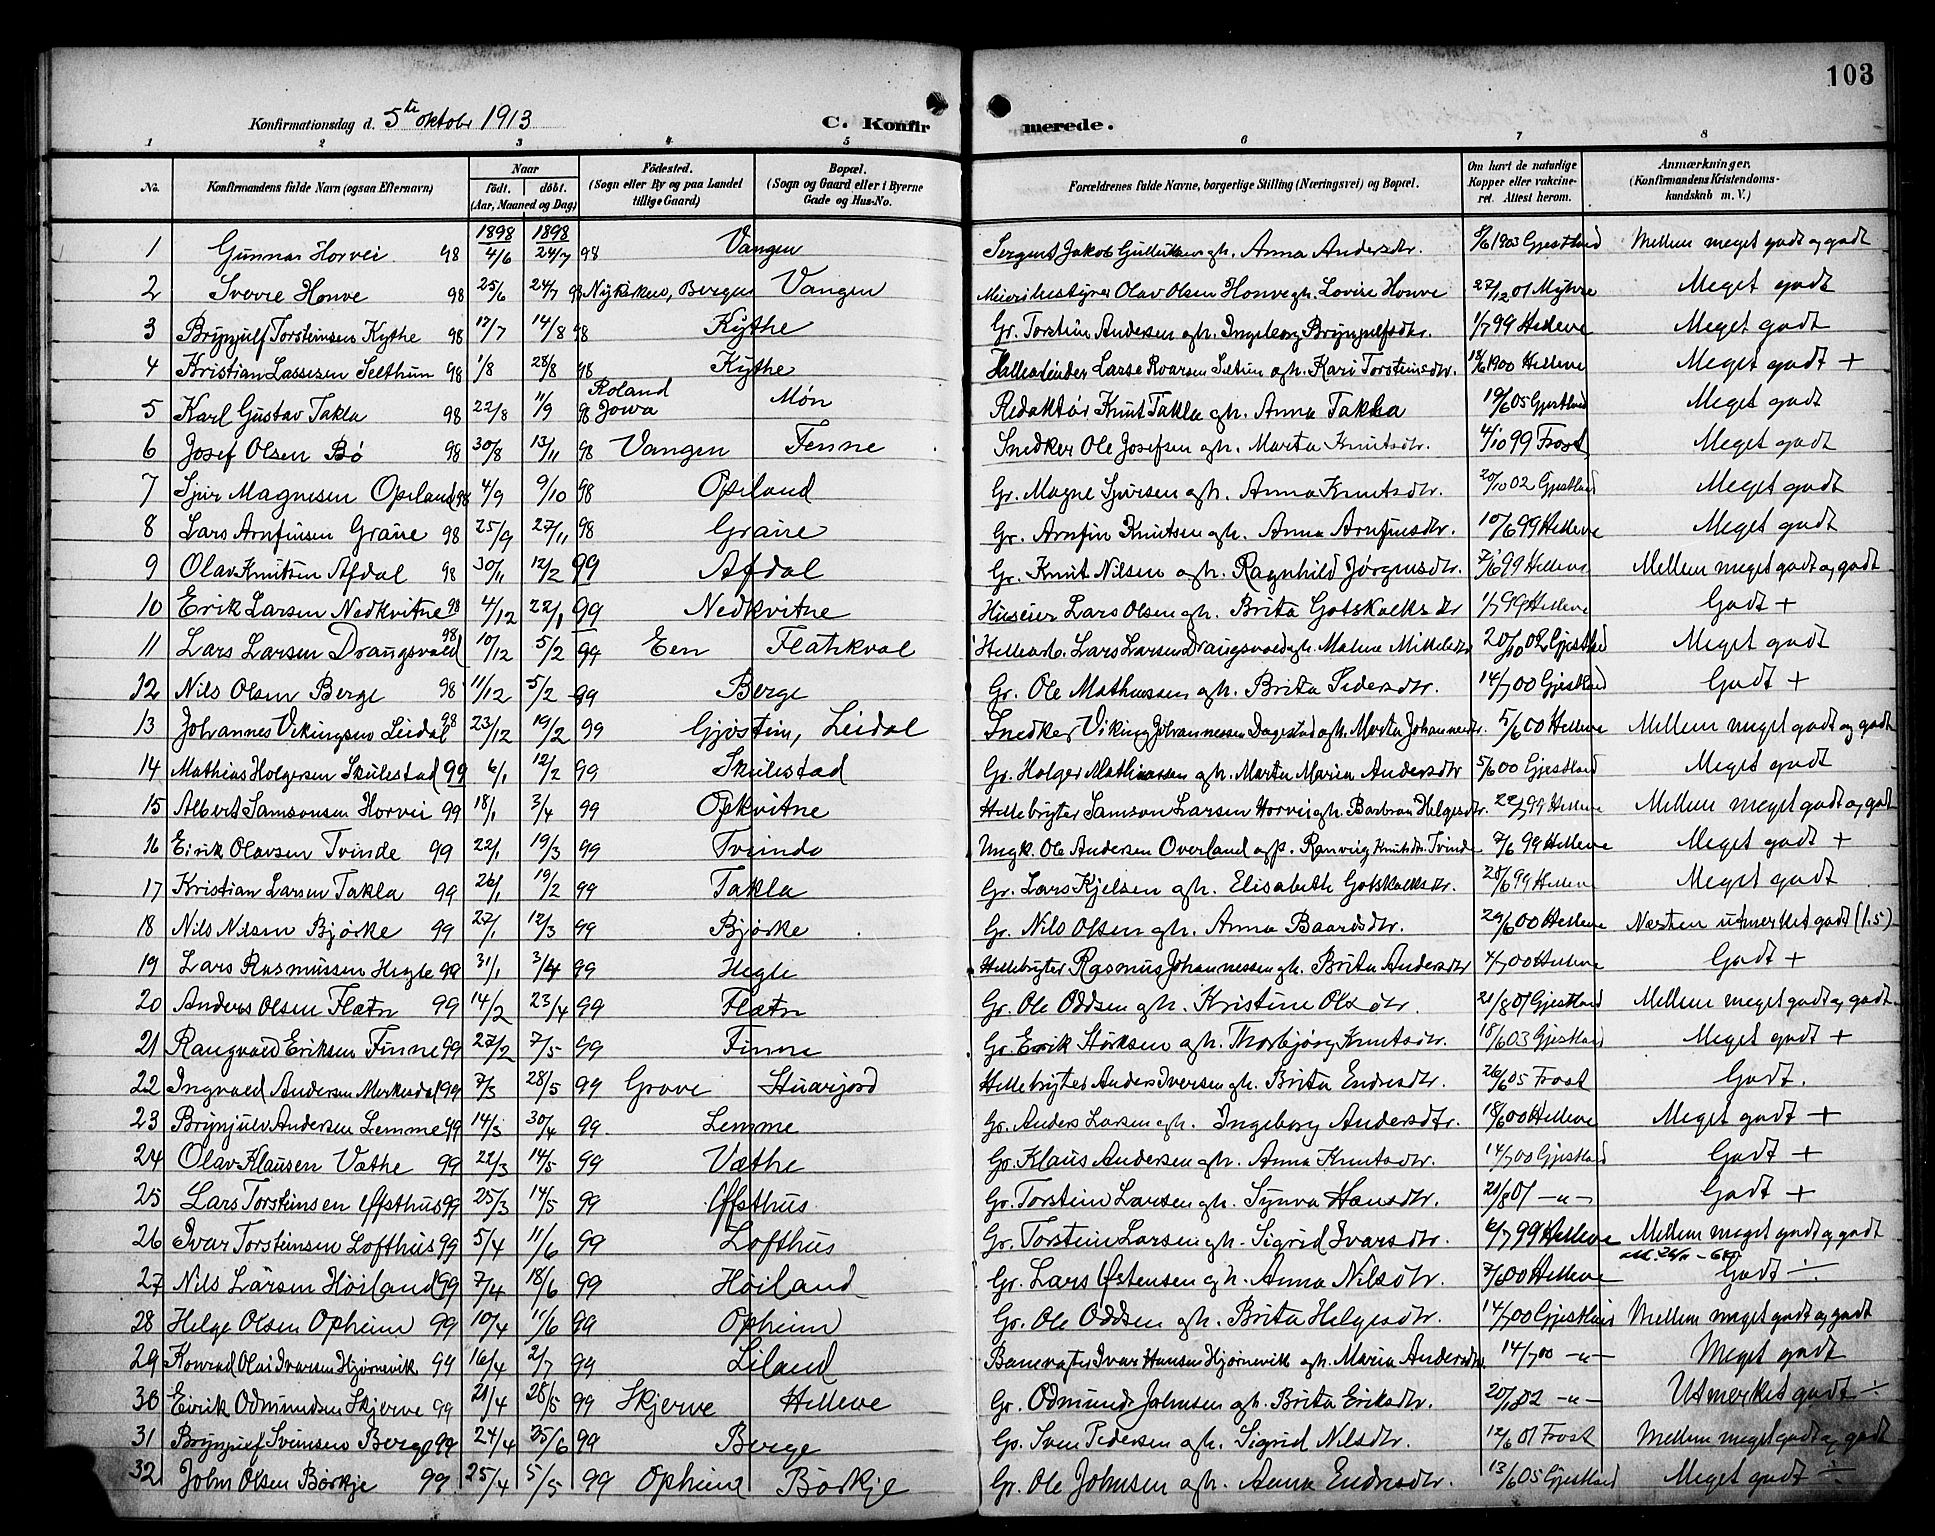 103
Konfirmationsdag d. 5te oktobr 1913 C. Konfirmerede.
1 2 3 4 5 6 7 8
No. Konfirmandens fulde Navn (ogsaa Efternavn) Naar født. døbt. (Aar, Maaned og Dag) Fødested. (Sogn eller By og paa Landet tillige Gaard) Bopæl. (Sogn og Gaard eller i Byerne Gade og Hus-No. Forældrenes fulde Navne, borgerlige Stilling (Næringsvei) og Bopæl. Om havt de naturlige Kopper eller vakcineret. Attest herom. Anmærkninger. (Konfirmandens Kristendomskundskab m. V.)
1898 1898
1 Gunnar Horvei 98 4/6 24/7 98 Vangen Sergent Jakob gh. Anna Andersdtr. 8/6 1903 Gjestland Mellem meget godt og godt
2 Sverre Honve 98 25/6 24/7 98 Nykirken, Bergen Vangen Meieribestyrer Olav Olsen Honve gh. Lovise Honve 27/12 01 Myhre Meget godt
3 Brynjulf Torsteinsen Kythe 98 17/7 14/8 98 Kythe Gr. Torstein Andersen gh. Ingeborg Brynjulfsdtr. 1/7 99 Helleve Meget godt
4 Kristian Lassesen Selthun 98 1/8 28/8 98 Kythe Lasse Roarsen gh. Kari Torsteinsdtr. 18/6 1900 Helleve Meget godt +
5 Karl Gustav Takla 98 22/8 11/9 98 Roland Jowa Møn Redaktør Knut Takla gh. Anna Takla 19/6 05 Gjestland Meget godt
6 Josef Olsen Bø 98 30/8 13/11 98 Vangen Fenne Snedker Ole Josefsen gh. Marta Knutsdtr. 4/10 99 Frost Meget godt
7 Sjur Magnesen Opeland 98 4/9 9/10 98 Opeland Gr. Magne Sjursen gh. Anna Knutsdtr. 20/10 02 Gjestland Meget godt
8 Lars Arnfinsen Graue 98 25/9 27/11 98 Graue Gr. Arnfin Knutsen gh. Anna Arnfinsdtr. 10/6 99 Helleve Meget godt
9 Olav Knutsen Afdal 98 30/11 12/2 99 Afdal Gr. Knut Nilsen gh. Ragnhild Jørgensdtr. 7/6 99 Helleve Mellem meget godt og godt
10 Erik Larsen Nedkvitne 98 4/12 22/1 99 Nedkvitne Huseier Lars Olsen gh. Brita Gotskalksdtr 1/7 99 Helleve Godt +
11 Lars Larsen Draugsvold 98 10/12 5/2 99 Een Flatekval Hellearb. Lars Larsen Draugsvold gh. Malene Mikkelsdtr 20/10 02 Gjestland Meget godt
12 Nils Olsen Berge 98 11/12 5/2 99 Berge Gr. Ole Mathiassen gh. Brita Pedersdtr. 14/7 00 Gjestland Godt +
13 Johannes Vikingsen Leidal 98 23/12 19/2 99 Gjøstein, Leidal Snedker Viking Johannessen Dagestad gh. Marta Johannesdtr. 5/6 00 Helleve Mellem meget godt og godt
14 Mathias Holgersen Skulestad 99 6/1 12/2 99 Skulestad Gr. Holger Mathiassen gh. Marta Maria Andersdtr 5/6 00 Gjestland Meget godt
15 Albert Samsonsen Horvei 99 18/1 3/4 99 Opkvitne Hellebryter Samson Larsen Horvei gh. Barbrau Helgesdtr. 22/7 99 Helleve Mellem meget godt og godt
16 Eirik Olavsen Tvinde 99 22/1 19/3 99 Tvinde Ungk. Ole Andersen Overland og p. Ranveig Knutsdtr. Tvinde 7/6 99 Helleve Meget godt +
17 Kristian Larsen Takla 99 26/1 19/2 99 Takla Gr. Lars Kjelsen gh. Elisabeth Gotskalksdtr. 28/6 99 Helleve Meget godt
18 Nils Nilsen Bjørke 99 27/1 12/3 99 Bjørke Gr. Nils Olsen gh. Anna Baardsdtr. 29/6 00 Helleve Næsten utmerket godt (1.5)
19 Lars Rasmussen Hegle 99 31/1 3/4 99 Hegle Hellebryter Rasmus Johannessen gh. Brita Andersdtr 4/7 00 Helleve Godt +
20 Anders Olsen Flætn 99 14/2 23/4 99 Flætn Gr. Ole Oddsen gh. Kristine Olsdtr. 21/8 01 Gjestland Mellem meget godt og godt
21 Rangvald Eriksen Finne 99 27/2 7/5 99 Finne Gr. Erik Størksen gh. Thorbjørg Knutsdtr. 18/6 03 Gjestland Meget godt +
22 Ingvald Andersen Merkesdal 99 7/3 28/5 99 Grove Hellebryter Anders Iversen gh. Brita Endresdtr. 26/6 05 Frost Godt.
23 Brynjulv Andersen Lemme 99 14/3 30/4 99 Lemme Gr. Anders Larsen gh. Ingeborg Andersdtr. 18/6 00 Helleve Meget godt +
24 Olav Klausen Væthe 99 22/3 14/5 99 Væthe Gr. Klaus Andersen gh. Anna Knutsdtr. 14/7 00 Gjestland Godt +
25 Lars Torsteinsen Øfsthus 99 25/3 14/5 99 Øfsthus Gr. Torstein Larsen gh. Synva Hansdtr. 21/8 01 -"- Godt +
26 Ivar Torsteinsen Lofthus 99 5/4 11/6 99 Lofthus Gr. Torstein Larsen gh. Sigrid Ivarsdtr. 6/7 99 Helleve Mellem meget godt og godt
27 Nils Larsen Høiland 99 7/4 18/6 99 Høiland Gr. Lars Østensen gh. Anna Nilsdtr. 7/6 00 Helleve Godt ÷
28 Helge Olsen Opheim 99 10/4 11/6 99 Opheim Gr. Ole Oddsen gh. Brita Helgesdtr. 14/7 00 Gjestland Mellem meget godt og godt
29 Konrad Olai Ivarsen Hjørnevik 99 16/4 2/7 99 Liland Banevogter Ivar Hansen Hjørnevik gh. Maria Andersdtr 14/7 00 -"- Meget godt
30 Eirik Odmundsen Skjerve 99 21/4 28/5 99 Skjerve Helleve Gr. Odmund Johnsen gh. Brita Eriksdtr. -"- Utmerket godt ÷
31 Brynjulf Svensen Berge 99 24/4 25/6 99 Berge Gr. Sven Pedersen gh. Sigrid Nilsdtr. 12/6 01 Frost Mellem meget godt og godt
32 John Olsen Børkje 99 25/4 5/5 99 Opheim Børkje Gr. Ole Johnsen gh. Anna Endresdtr. 13/6 05 Gjestland Meget godt ÷